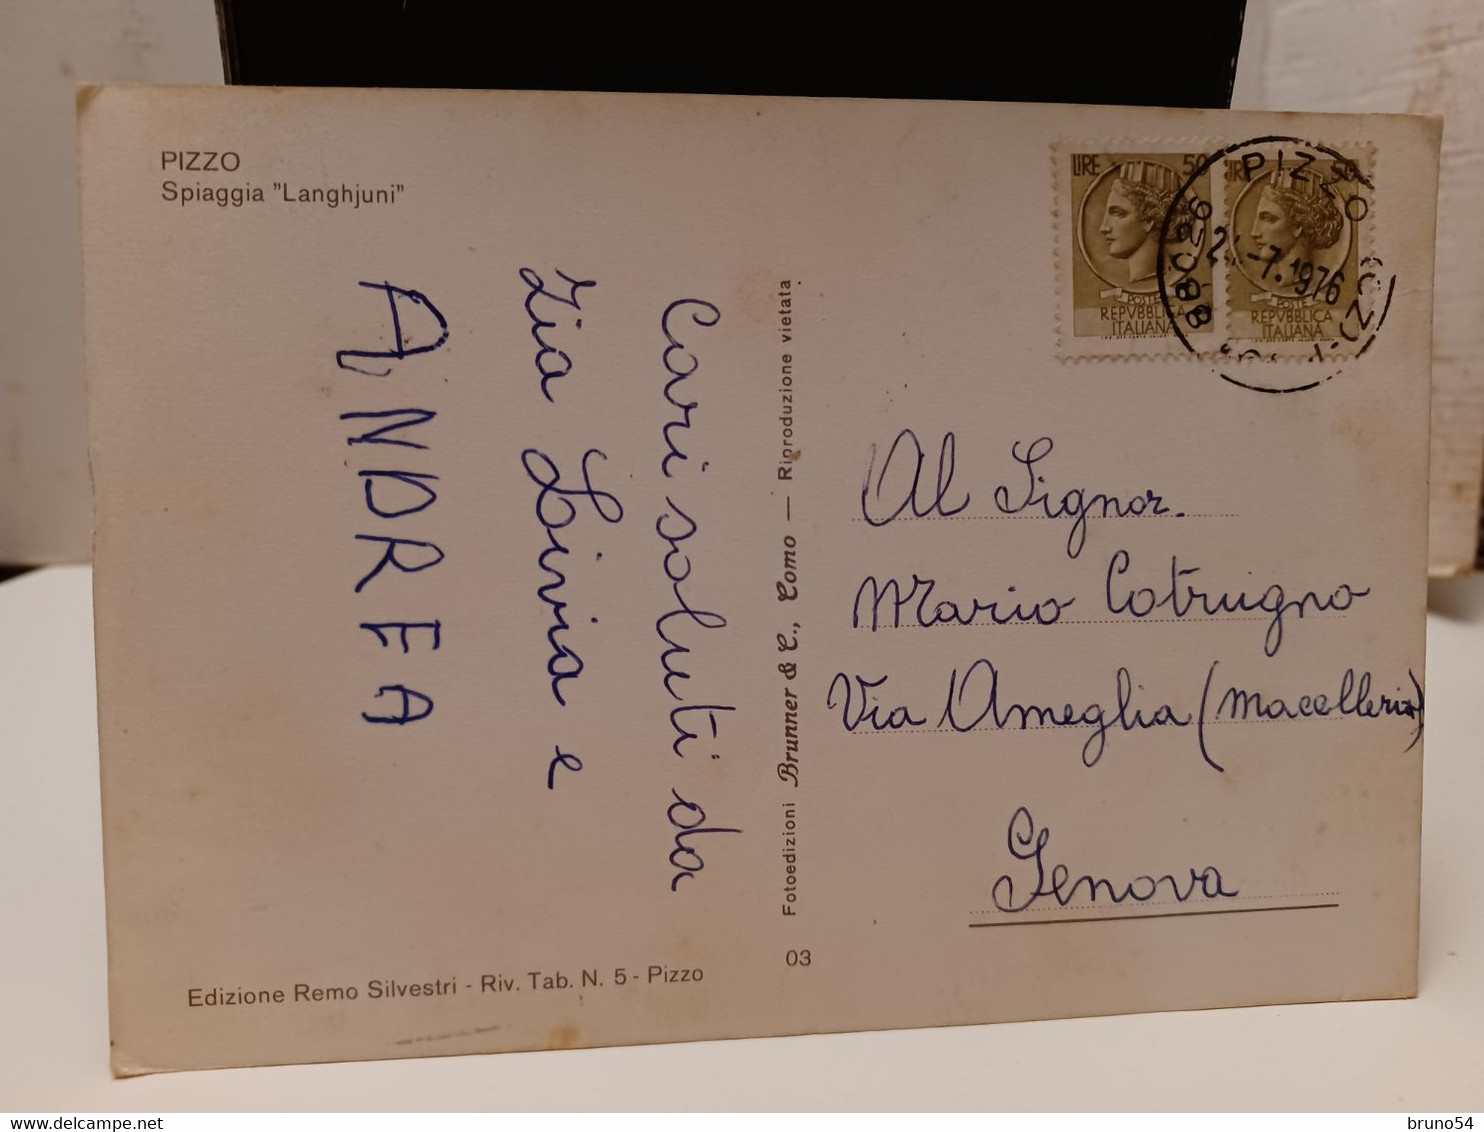 PIZZO
Spiaggia "Langhjuni"
Cari saluti da
Zia Livia e
ANDREA
Edizione Remo Silvestri - Riv. Tab. N. 5 - Pizzo
Fotoedizioni Brunner & C., Como — Riproduzione vietata
03
LIRE 50
POSTE
REPVBBLICA
ITALIANA
LIRE 50
POSTE
REPVBBLICA
ITALIANA
PIZZO
-7.1976
Al Signor.
Mario Cotrugno
Via Ameglia (macelleria)
Genova
bruno54